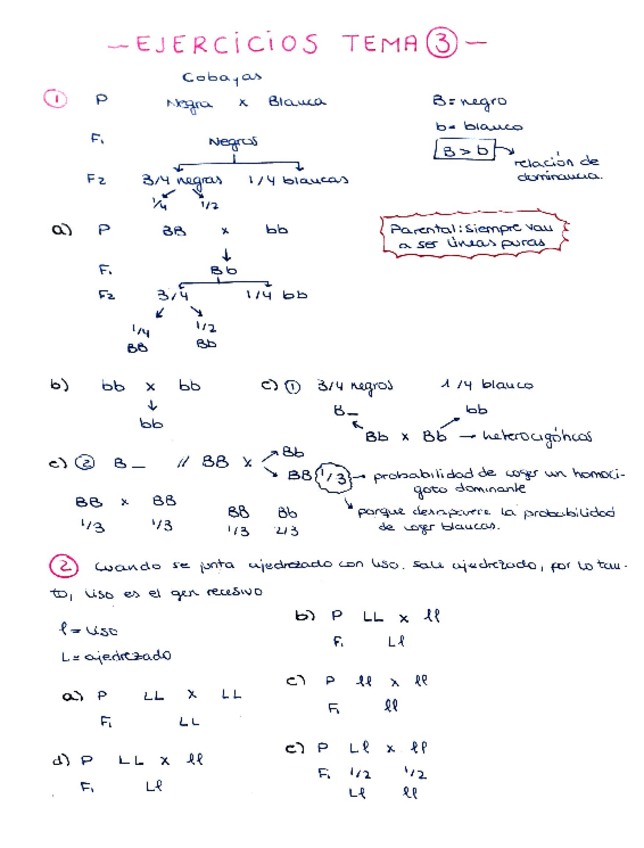 - EJERCICIOS TEMA ③ -
Cobayas
① P Negra x Blanca B = negro
b = blanco
F₁ Negros B > b relación de
dominancia.
F2 3/4 negras 1/4 blancas
1/4 1/2
a) P BB x bb Parental: siempre van
a ser líneas puras
F₁ Bb
F2 3/4 1/4 bb
1/4 1/2
BB Bb
b) bb x bb c) ① 3/4 negros 1/4 blanco
bb B_ bb
Bb x Bb → heterocigóticos
c) ② B_ // BB x Bb
BB 1/3 → probabilidad de coger un homoci-
goto dominante
BB x BB BB Bb porque desaparece la probabilidad
1/3 1/3 1/3 2/3 de coger blancas.
② Cuando se junta ajedrezado con liso. sale ajedrezado, por lo tan-
to, liso es el gen recesivo
l = liso
L = ajedrezado
a) P LL x LL
F₁ LL
b) P LL x ll
F₁ Ll
c) P ll x ll
F₁ ll
d) P LL x ll
F₁ Ll
e) P Ll x ll
F₁ 1/2 1/2
Ll ll